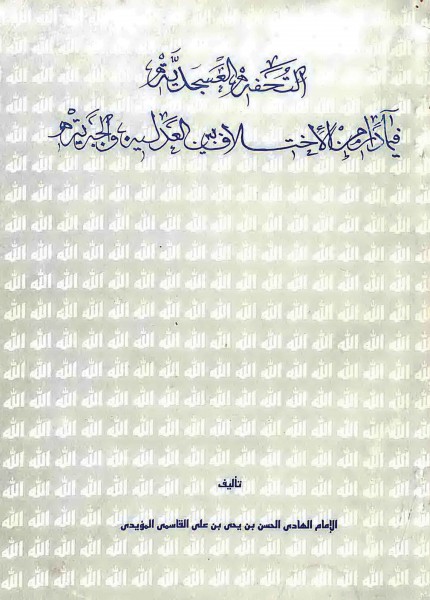 التحفة العسجدية
فيما دار من الاختلاف بين العدلية والجبرية
تأليف
الإمام الهادى الحسن بن يحى بن على القاسمى المؤيدى